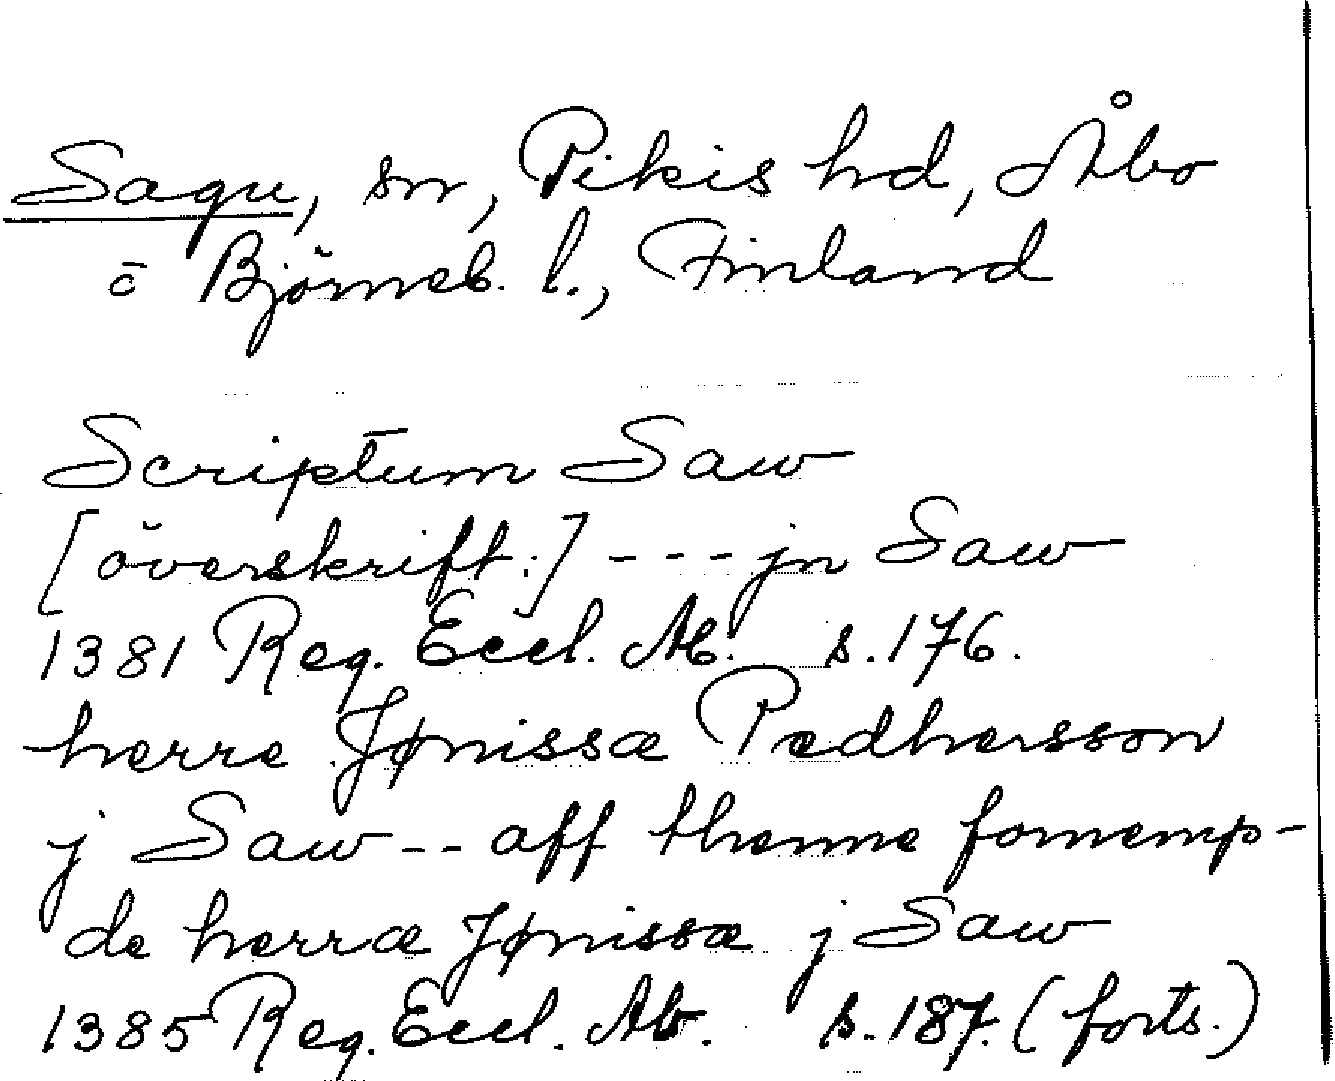 Sagu, sn, Pikis hd, Åbo
o Björneb. l., Finland
Scriptum Saw
[överskrift:] --- jn Saw
1381 Reg. Eccl. Ab. s. 176.
herre Jønissæ Pædhersson
j Saw -- aff thenne fornemp-
de herræ Jønissæ j Saw
1385 Reg. Eccl. Ab. s. 187. (forts.)